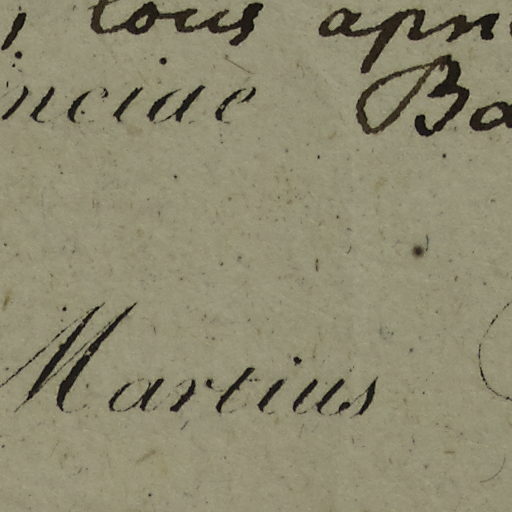 , locis apri
nciae Ba
Martius